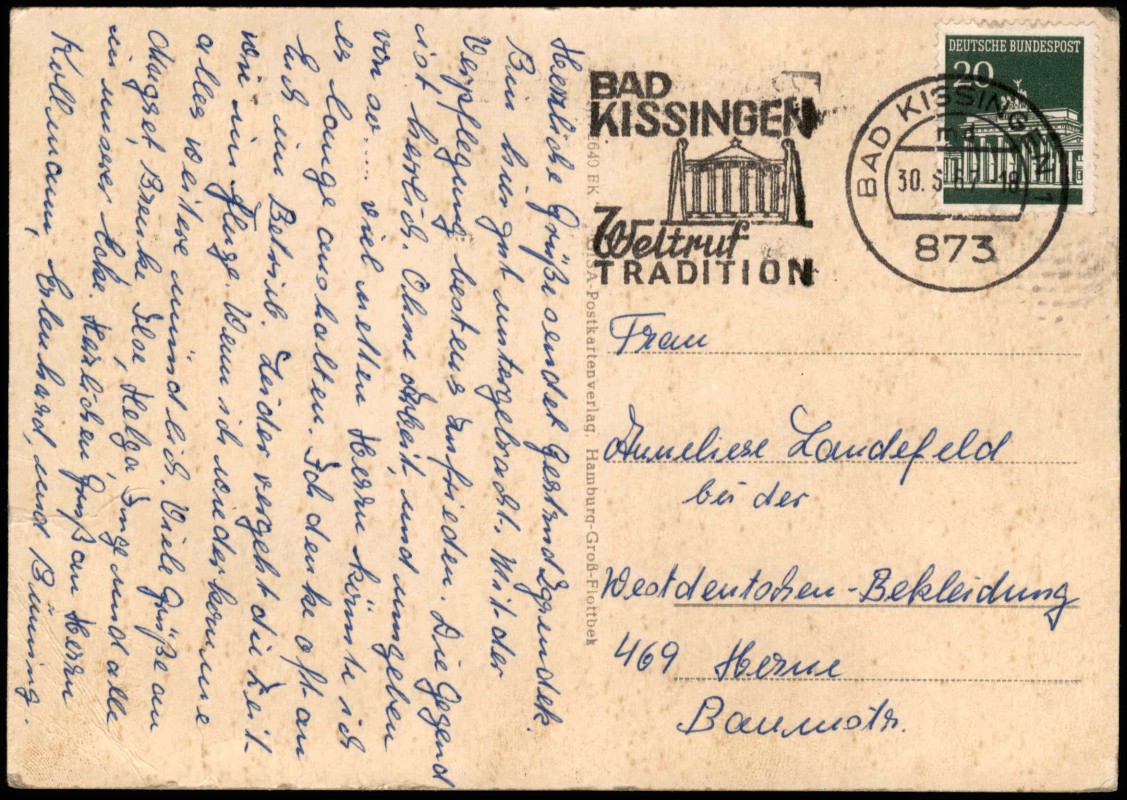 Herzliche Grüße sendet Gertrud
Bin hier gut untergebracht. Mit der
Verpflegung bestens zufrieden. Die Gegend
ist herlich. Ohne Arbeit und umgeben
von so.... viel netten Herrn könnte ich
es lange aushalten. Ich denke oft an
Euch im Betrieb. Leider vergeht die Zeit
wie im Fluge. Wenn ich wiederkomme
alles weitere mündlich. Viele Grüße an
Margret Brenke, Ilse, Helga, Inge und alle
in unserer Ecke. Herlichen Gruß an Herrn
Kollmann, Erlenhard, und Büning.
BAD
KISSINGEN
Weltruf
TRADITION
DEUTSCHE BUNDESPOST
20
BAD KISSINGEN 1
md
30. 5. 67. 18
873
A-Postkartenverlag, Hamburg-Groß-Flottbek
Frau
Anneliese Landefeld
bei der
Westdeutschen-Bekleidung
469 Herne
Baumstr.